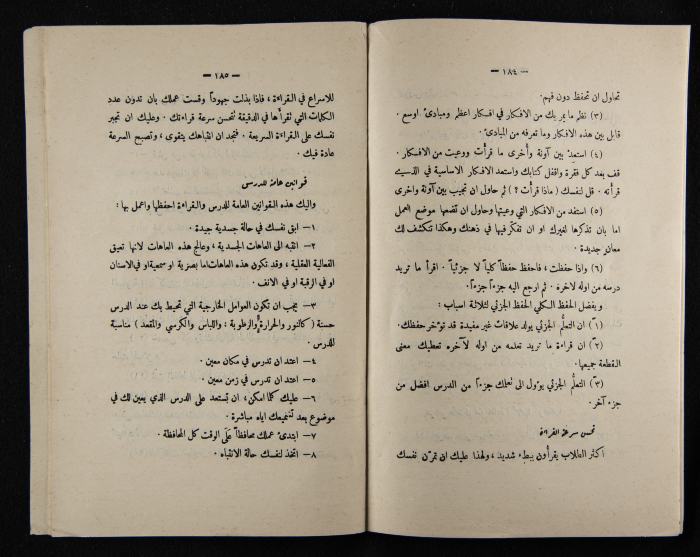 — ١٨٤ —
تحاول ان تحفظ دون فهم.
(٣) نظم ما يمر بك من الافكار في افكار اعظم ومبادئ اوسع .
قابل بين هذه الافكار وما تعرفه من المبادئ.
(٤) استعد بين آونة وأخرى ما قرأت ووعيت من الافكار .
قف بعد كل فقرة واقفل كتابك واستعد الافكار الاساسية في الذي
قرأته . قل لنفسك (ماذا قرأت ؟) ثم حاول ان تجيب بين آونة واخرى
(٥) استفد من الافكار التي وعيتها وحاول ان تضعها موضع العمل
اما بان تذكرها لغيرك او ان تفكّر فيها في ذهنك وهكذا تتكشف لك
معانٍ جديدة .
(٦) واذا حفظت ، فاحفظ حفظاً كلياً لا جزئياً . اقرأ ما تريد
درسه من اوله لآخره . ثم ارجع اليه جزءاً جزءاً.
ويفضل الحفظ الكلي الحفظ الجزئي لثلاثة اسباب :
(١) ان التعلّم الجزئي يولد علاقات غير مفيدة قد تؤخر حفظك.
(٢) ان قراءة ما تريد تعلمه من اوله لآخره تعطيك معنى
القطعة جميعها.
(٣) التعلّم الجزئي يؤول الى تعلمك جزءاً من الدرس افضل من
جزء آخر.
تحسن سرعة القراءة
اكثر الطلاب يقرأون ببطء شديد ، ولهذا عليك ان تمرّن نفسك
— ١٨٥ —
للاسراع في القراءة ، فاذا بذلت جهوداً وقست عملك بان تدون عدد
الكلمات التي تقرأها في الدقيقة تتحسن سرعة قراءتك . وعليك ان تجبر
نفسك على القراءة السريعة . فتجد ان انتباهك يتقوى ، وتصبح السرعة
عادة فيك .
قوانين عامة للدرس
واليك هذه القوانين العامة للدرس والقراءة احفظها واعمل بها :
١— ابق نفسك في حالة جسدية جيدة .
٢— انتبه الى العاهات الجسدية ، وعالج هذه العاهات لانها تعيق
الفعالية العقلية ، وقد تكون هذه العاهات اما بصرية او سمعية او في الاسنان
او في الرقبة او في الانف .
٣— يجب ان تكون العوامل الخارجية التي تحيط بك عند الدرس
حسنة (كالنور والحرارة والرطوبة ؛ واللباس والكرسي والمقعد) مناسبة
للدرس .
٤— اعتد ان تدرس في مكان معين .
٥— اعتد ان تدرس في زمن معين .
٦— عليك كلما امكن ، ان تستعد على الدرس الذي يعين لك في
موضوع بعد تتميمك اياه مباشرة .
٧— ابتدئ عملك محافظاً على الوقت كل المحافظة .
٨— اتخذ لنفسك حالة الانتباه .